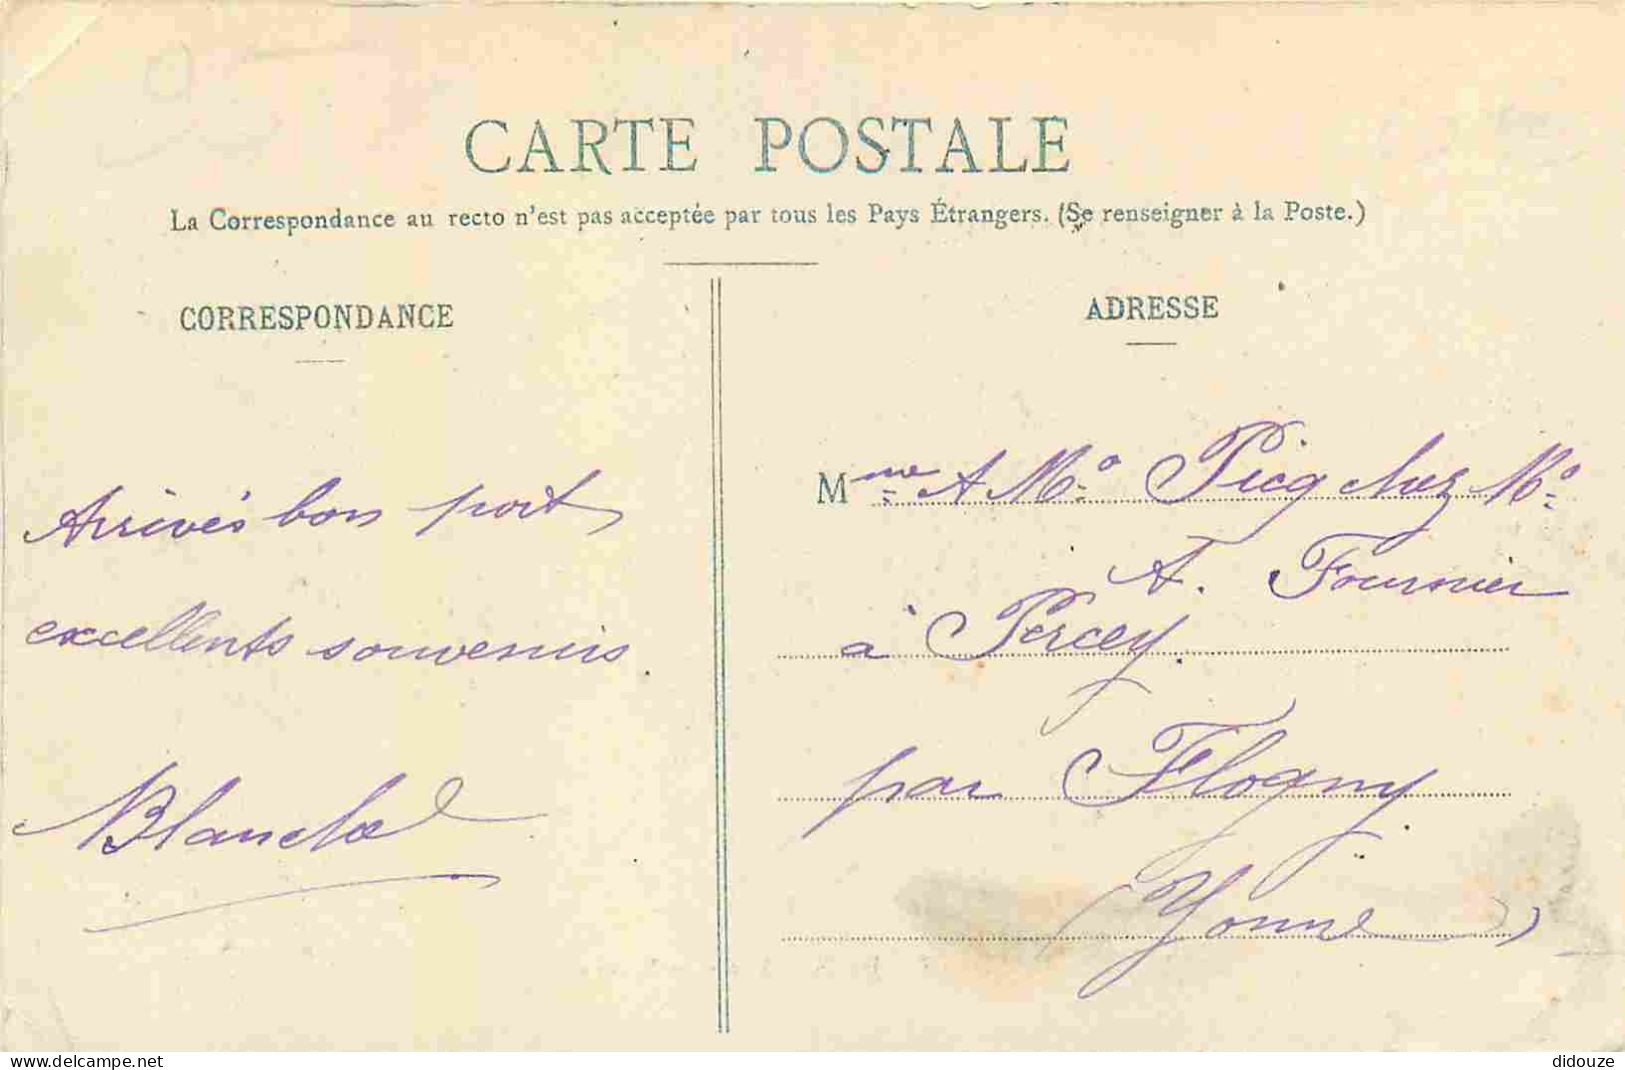 CARTE POSTALE
La Correspondance au recto n'est pas acceptée par tous les Pays Étrangers. (Se renseigner à la Poste.)
CORRESPONDANCE
Arrivés bon port
excellents souvenirs
Blanche
ADRESSE
Mme A Mo. Picq chez Mo.
A. Fournier
à Percey.
par Flogny.
(Yonne)
delcampe.net
didouze